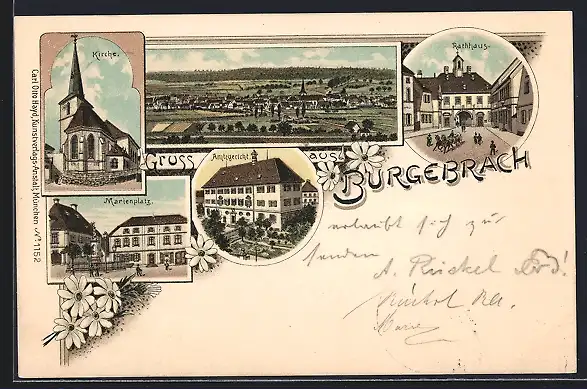 Kirche.
Rathhaus.
Gruss aus
Burgebrach
Amtsgericht.
Marienplatz.
Carl Otto Hayd, Kunstverlags-Anstalt, München Nº 1152
erlaubt sich zur
senden
A. Rückel
Marie